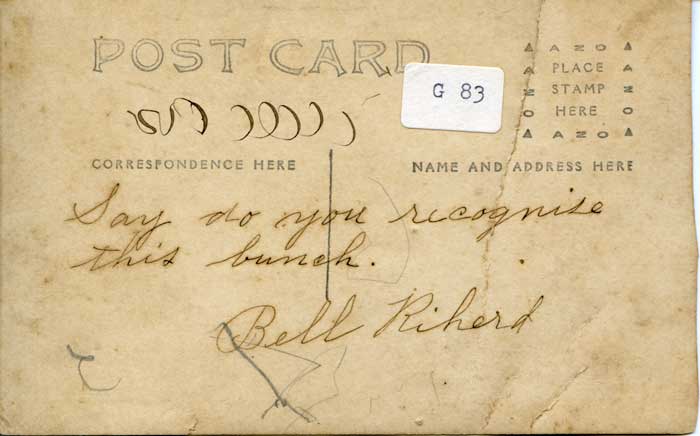 POST CARD
G 83
ANO
PLACE
STAMP
HERE
ANO
CORRESPONDENCE HERE
NAME AND ADDRESS HERE
Say do you recognise
this bunch.
Bell Riherd